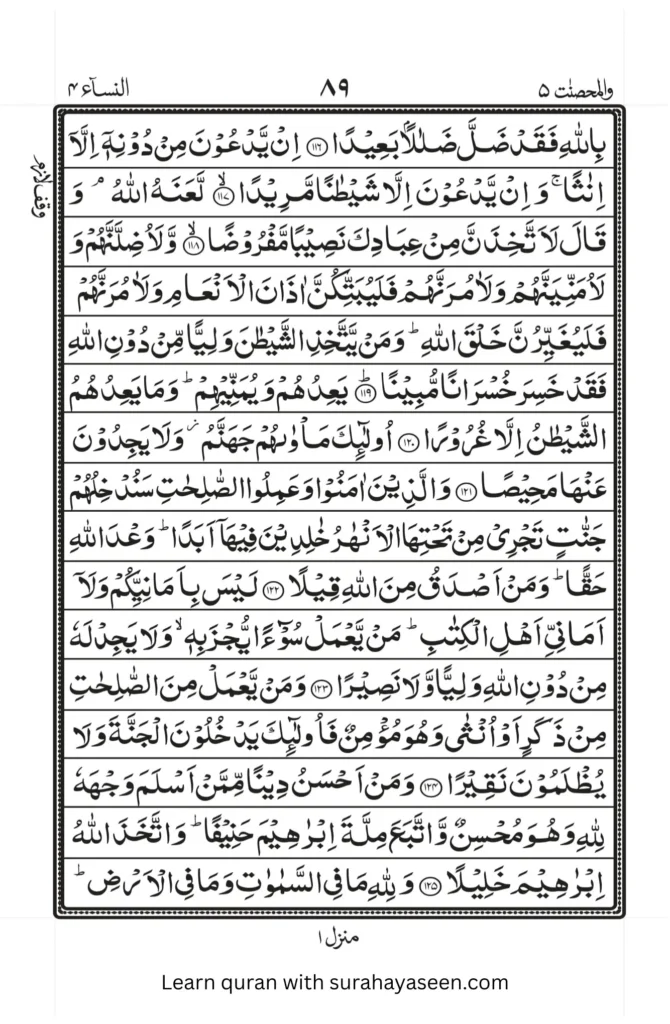 والمحصنت ٥ ٨٩ النسآء ٤
بِاللّٰهِ فَقَدْ ضَلَّ ضَلٰلًۢا بَعِيْدًا ۝١١٦ اِنْ يَّدْعُوْنَ مِنْ دُوْنِهٖۤ اِلَّاۤ
وقف لازم
اِنٰثًا ۚ وَ اِنْ يَّدْعُوْنَ اِلَّا شَيْطٰنًا مَّرِيْدًا ۙ۝١١٧ لَّعَنَهُ اللّٰهُ ۘ وَ
قَالَ لَاَ تَّخِذَنَّ مِنْ عِبَادِكَ نَصِيْبًا مَّفْرُوْضًا ۙ۝١١٨ وَّ لَاُضِلَّنَّهُمْ وَ
لَاُمَنِّيَنَّهُمْ وَلَاٰمُرَنَّهُمْ فَلَيُبَتِّكُنَّ اٰذَانَ الْاَنْعَامِ وَلَاٰمُرَنَّهُمْ
فَلَيُغَيِّرُنَّ خَلْقَ اللّٰهِ ؕ وَمَنْ يَّتَّخِذِ الشَّيْطٰنَ وَلِيًّا مِّنْ دُوْنِ اللّٰهِ
فَقَدْ خَسِرَ خُسْرَانًا مُّبِيْنًا ؕ۝١١٩ يَعِدُهُمْ وَيُمَنِّيْهِمْ ؕ وَمَا يَعِدُهُمُ
الشَّيْطٰنُ اِلَّا غُرُوْرًا ۝١٢٠ اُولٰٓئِكَ مَاْوٰىهُمْ جَهَنَّمُ ؗ وَلَا يَجِدُوْنَ
عَنْهَا مَحِيْصًا ۝١٢١ وَالَّذِيْنَ اٰمَنُوْا وَعَمِلُوا الصّٰلِحٰتِ سَنُدْخِلُهُمْ
جَنّٰتٍ تَجْرِيْ مِنْ تَحْتِهَا الْاَنْهٰرُ خٰلِدِيْنَ فِيْهَاۤ اَبَدًا ؕ وَعْدَ اللّٰهِ
حَقًّا ؕ وَمَنْ اَصْدَقُ مِنَ اللّٰهِ قِيْلًا ۝١٢٢ لَيْسَ بِاَمَانِيِّكُمْ وَلَاۤ
اَمَانِيِّ اَهْلِ الْكِتٰبِ ؕ مَنْ يَّعْمَلْ سُوْٓءًا يُّجْزَ بِهٖ ۙ وَلَا يَجِدْ لَهٗ
مِنْ دُوْنِ اللّٰهِ وَلِيًّا وَّلَا نَصِيْرًا ۝١٢٣ وَمَنْ يَّعْمَلْ مِنَ الصّٰلِحٰتِ
مِنْ ذَكَرٍ اَوْ اُنْثٰى وَهُوَ مُؤْمِنٌ فَاُولٰٓئِكَ يَدْخُلُوْنَ الْجَنَّةَ وَلَا
يُظْلَمُوْنَ نَقِيْرًا ۝١٢٤ وَمَنْ اَحْسَنُ دِيْنًا مِّمَّنْ اَسْلَمَ وَجْهَهٗ
لِلّٰهِ وَهُوَ مُحْسِنٌ وَّاتَّبَعَ مِلَّةَ اِبْرٰهِيْمَ حَنِيْفًا ؕ وَاتَّخَذَ اللّٰهُ
اِبْرٰهِيْمَ خَلِيْلًا ۝١٢٥ وَلِلّٰهِ مَا فِي السَّمٰوٰتِ وَمَا فِي الْاَرْضِ ؕ
منزل ١
Learn quran with surahayaseen.com